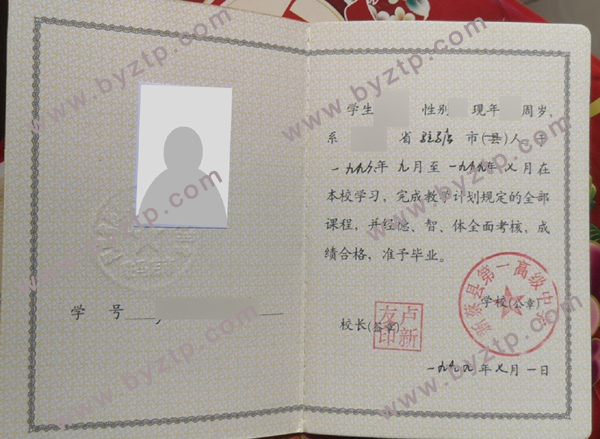 学号
学生 性别 现年 周岁,
系 省 驻马店 市(县)人,于
一九九六年九月至一九九九年七月在
本校学习,完成教学计划规定的全部
课程,并经德、智、体全面考核,成
绩合格,准予毕业。
学校(公章)
新蔡县第一高级中学
校长(签章)
卢新友印
一九九九年七月一日
www.byztp.com
www.byztp.com
www.byztp.com
www.byztp.com
www.byztp.com
www.byztp.com